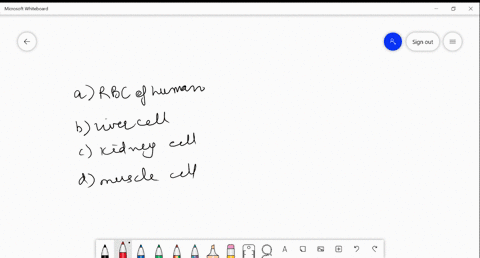 Microsoft Whiteboard
Sign out
a) RBC of human
b) liver cell
c) kidney cell
d) muscle cell